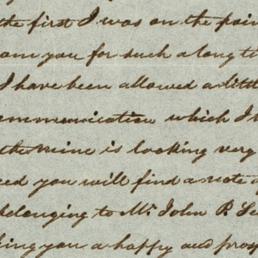 the first I was on the poin
you for such a long ti
I have been allowed a little
ommunication which I
the mine is looking very
ed you will find a note
belonging to Mr John P. Se
ing you a happy and prosp